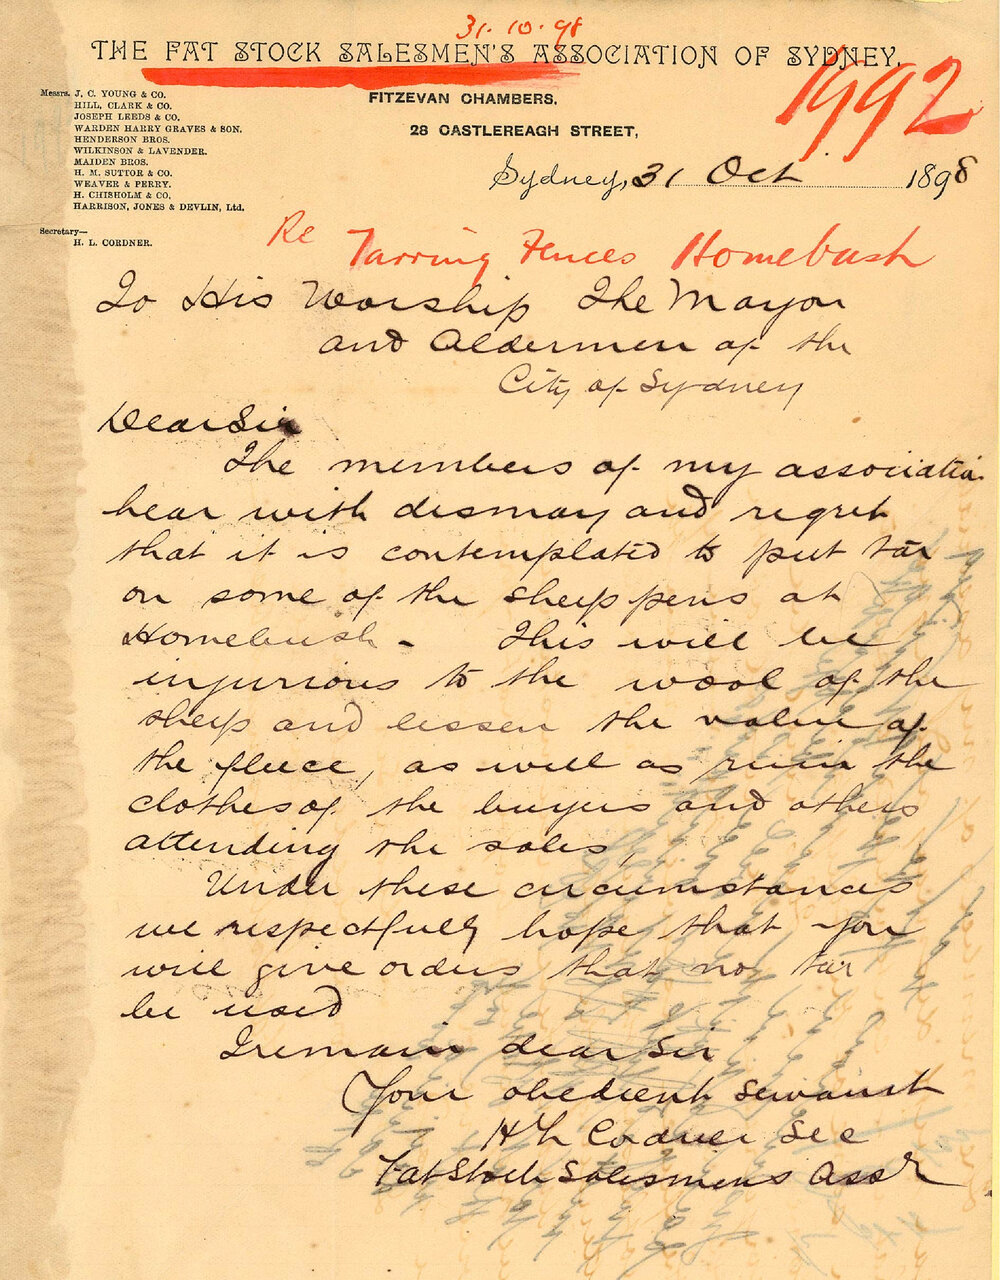 31.10.98
THE FAT STOCK SALESMEN'S ASSOCIATION OF SYDNEY.
1992
FITZEVAN CHAMBERS,
28 CASTLEREAGH STREET,
Messrs. J. C. YOUNG & CO.
HILL, CLARK & CO.
JOSEPH LEEDS & CO.
WARDEN HARRY GRAVES & SON.
HENDERSON BROS.
WILKINSON & LAVENDER.
MAIDEN BROS.
H. M. SUTTOR & CO.
WEAVER & PERRY.
H. CHISHOLM & CO.
HARRISON, JONES & DEVLIN, Ltd.
Secretary—
H. L. CORDNER.
Sydney, 31 Oct 1898
Re Tarring Fences Homebush
To His Worship The Mayor
and Aldermen of the
City of Sydney
Dear Sir
The members of my associatio
hear with dismay and regret
that it is contemplated to put tar
on some of the sheep pens at
Homebush - This will be
injurious to the wool of the
sheep and lessen the value of
the fleece, as well as ruin the
clothes of the buyers and others
attending the sales,
Under these circumstances
we respectfully hope that you
will give orders that no tar
be used
I remain dear Sir
Your obedient servant
H L Cordner Sec
Fat Stock Salesmens Assn